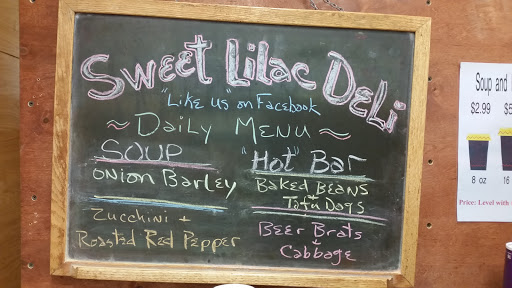 Sweet Lilac Deli
"Like us" on Facebook
~ Daily Menu ~
Soup
Onion Barley
Zucchini +
Roasted Red Pepper
"Hot" Bar
Baked Beans
+ Tofu Dogs
Beer Brats
+
Cabbage
Soup and
$2.99 $5
8 oz 16
Price: Level with